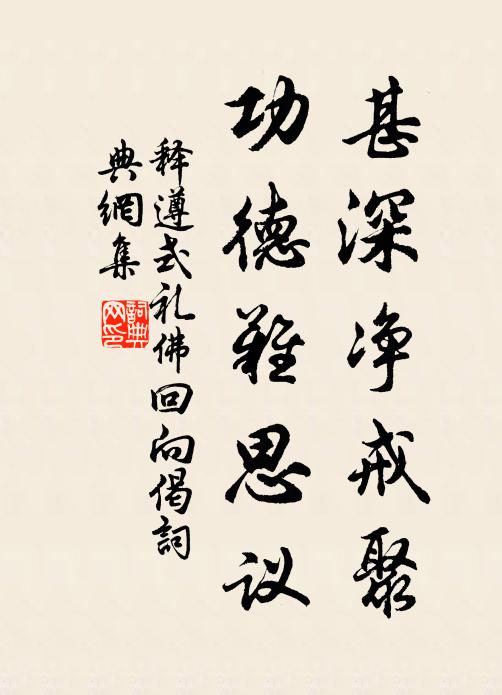 甚深净戒聚
功德难思议
释遵式礼佛回向偈詞
典網集
詞典
网印